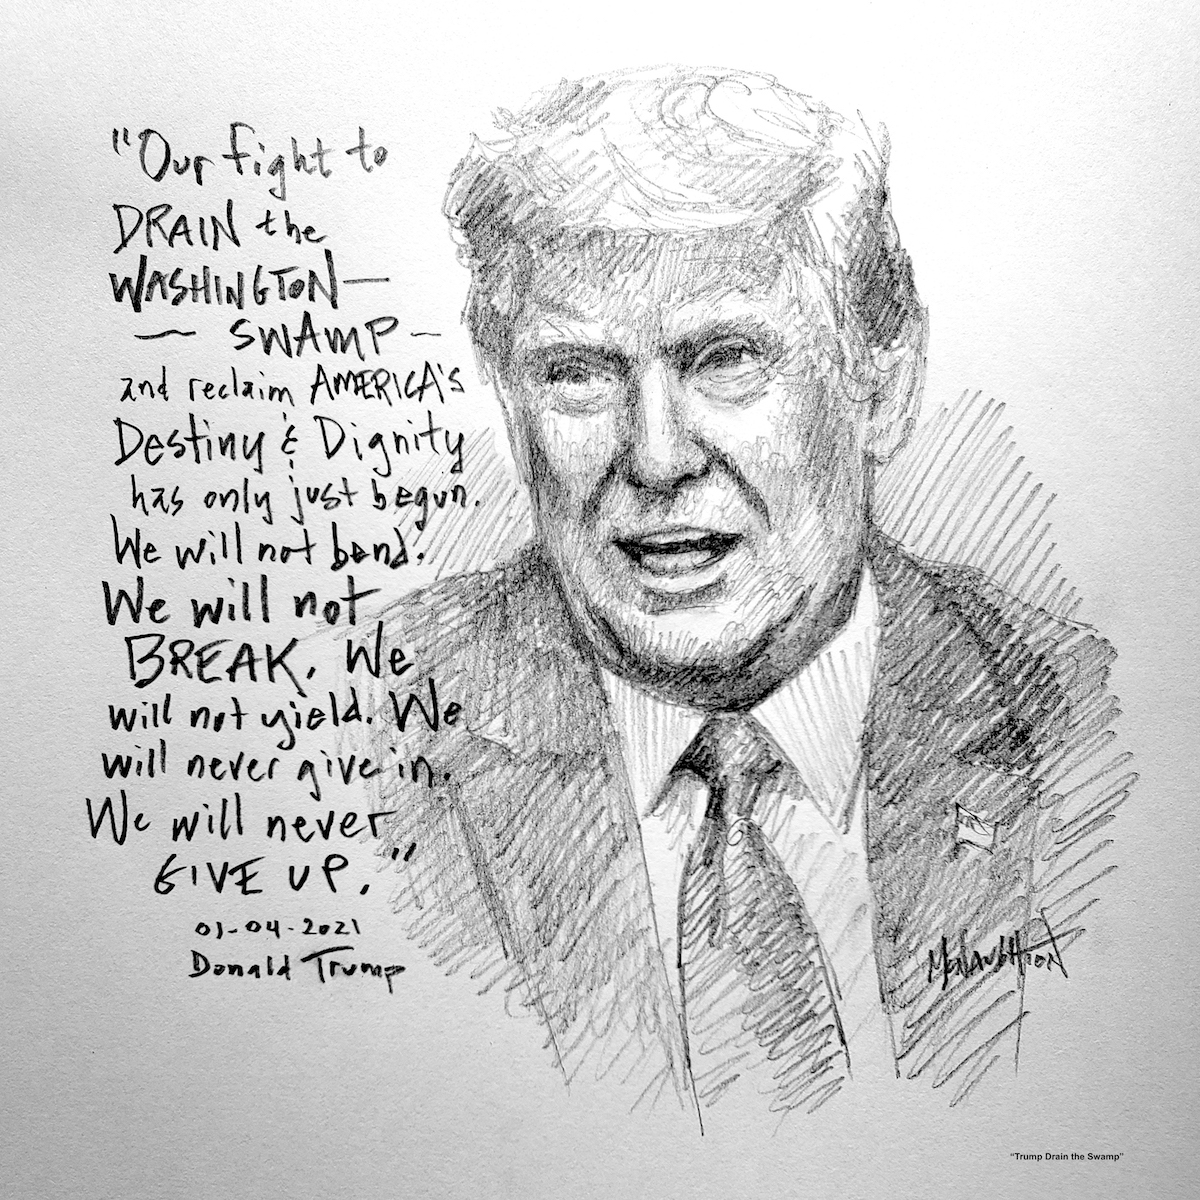 "Our fight to
DRAIN the
WASHINGTON—
— SWAMP —
and reclaim AMERICA'S
Destiny & Dignity
has only just begun.
We will not bend.
We will not
BREAK. We
will not yield. We
will never give in.
We will never
GIVE UP."
01-04-2021
Donald Trump
McNaughton
"Trump Drain the Swamp"